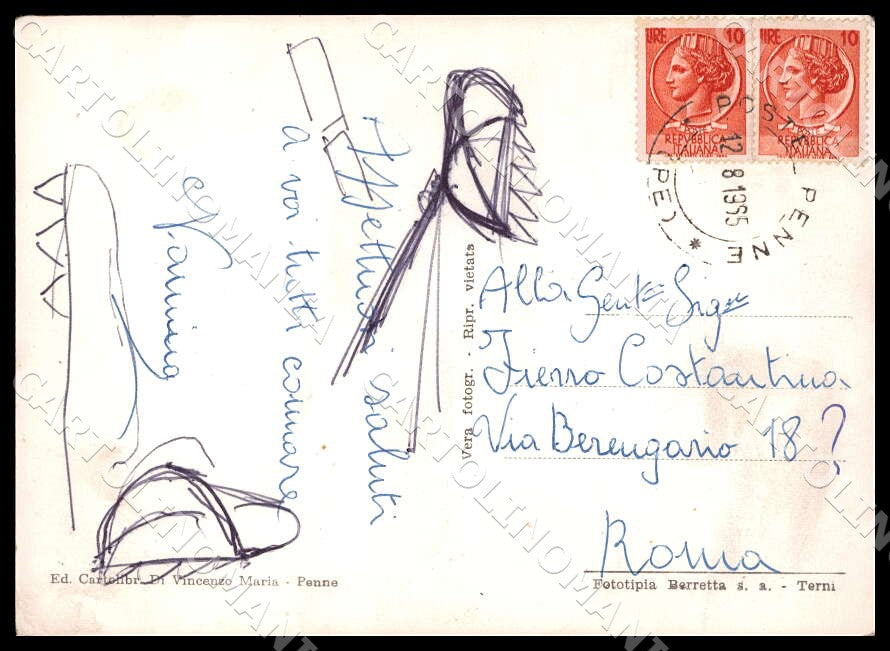 LIRE 10
REPVBBLICA
ITALIANA
LIRE 10
REPVBBLICA
ITALIANA
POSTE - PENNE
(PE)
12
8 1955
Affettuosi saluti
a voi tutti comare
Vera fotogr. - Ripr. vietata
Alla Gent.
Fierro Costantina
Via Berengario 18?
Roma
Ed. Cartolibr. Di Vincenzo Maria - Penne
Fototipia Berretta s. a. - Terni
CARTOLINOMANIA